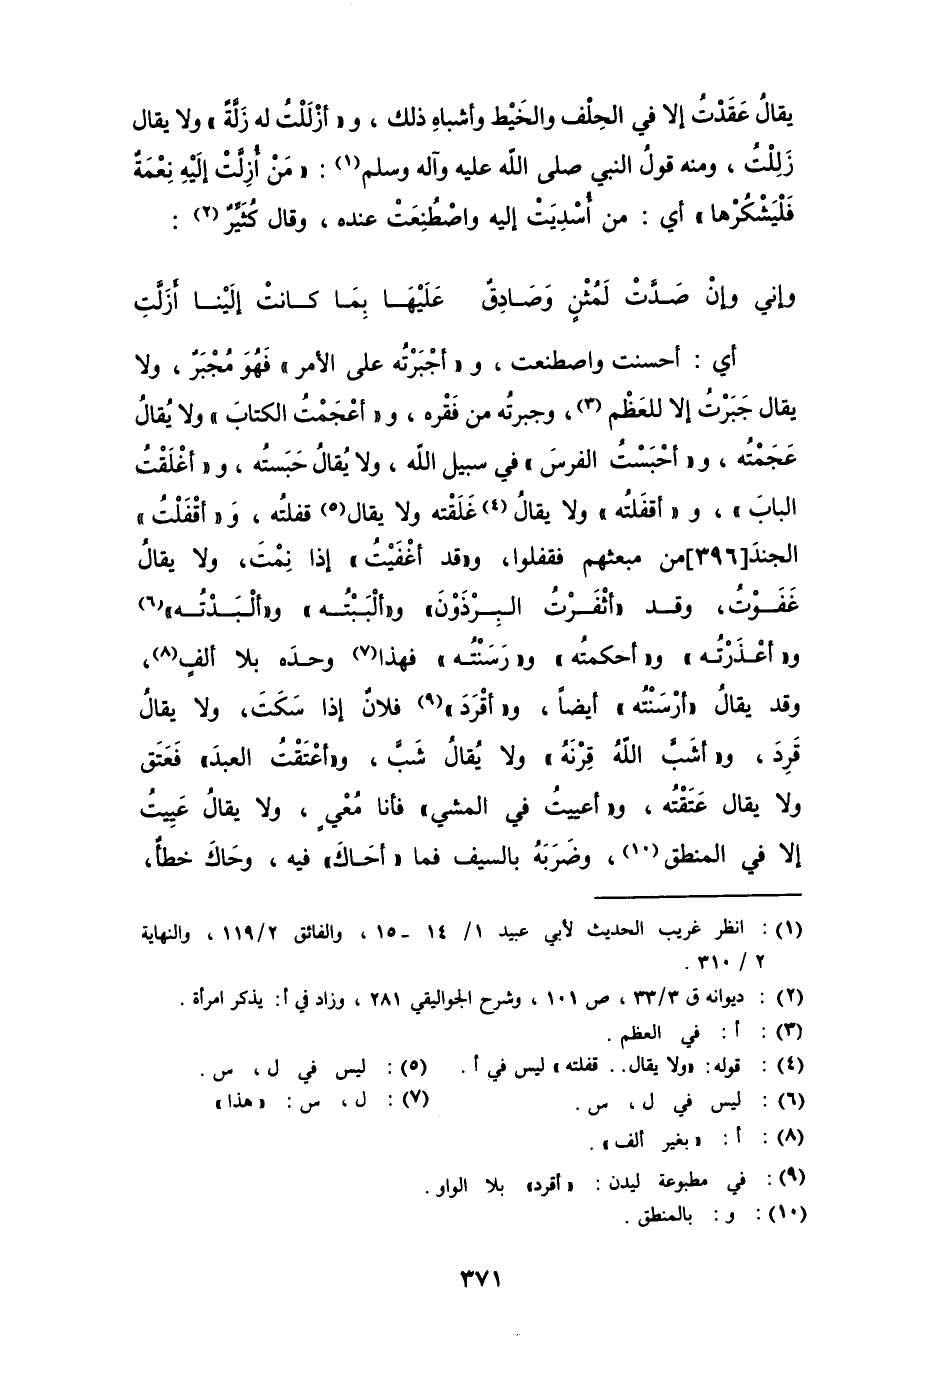 يقالُ عَقَدْتُ إلا في الحِلْف والخَيْط وأشباهِ ذلك ، و « أزْلَلْتُ له زَلَّةً » ولا يقال
زَلِلْتُ ، ومنه قولُ النبي صلى اللّه عليه وآله وسلم(١) : « مَنْ أُزِلَّتْ إلَيْهِ نِعْمَةٌ
فَلْيَشْكُرْها » أي : من أُسْدِيَتْ إليه واصْطُنِعَتْ عنده ، وقال كُثَيِّرٌ (٢) :
وإني وإنْ صَدَّتْ لَمُثْنٍ وَصَادِقٌ عَلَيْهَا بِمَا كانتْ إلَيْنا أَزَلَّتِ
أي : أحسنت واصطنعت ، و « أجْبَرْتُه على الأمر » فَهُوَ مُجْبَرٌ ، ولا
يقال جَبَرْتُ إلا للعَظْم (٣)، وجبرتُه من فَقْره ، و « أعْجَمْتُ الكتابَ » ولا يُقالُ
عَجَمْتُه ، و « أحْبَسْتُ الفرسَ » في سبيل اللّه ، ولا يُقالُ حَبَستُه ، و « أغْلَقْتُ
البابَ » ، و « أقفَلتُه » ولا يقالُ (٤) غَلَقْته ولا يقال(٥) قفلتُه ، وَ « أقْفَلْتُ »
الجندَ[٣٩٦]من مبعثهم فقفلوا، و«قد أغْفَيْتُ » إذا نِمْتَ، ولا يقالُ
غَفَوْتُ، وقد «أثْفَرْتُ البِرْذَوْنَ» و«ألْبَبْتُه » و«ألْبَدْتُه»(٦)
و« أعْذَرْتُه » و« أحكمتُه » و« رَسَنْتُه » فهذا(٧) وحدَه بلا ألفٍ(٨)،
وقد يقالُ «أرْسَنْتُه » أيضاً ، و« أقْرَدَ »(٩) فلانٌ إذا سَكَتَ، ولا يقالُ
قَرِدَ ، و« أشَبَّ اللّهُ قِرْنَهُ » ولا يُقالُ شَبَّ ، و«أعْتَقْتُ العبدَ» فَعَتَق
ولا يقال عَتَقْتُه ، و« أعييتُ في المشي» فأنا مُعْيٍ ، ولا يقالُ عَيِيتُ
إلا في المنطق (١٠) ، وضَرَبَهُ بالسيف فما « أحَاكَ» فيه ، وحَاكَ خطأٌ،
(١) : انظر غريب الحديث لأبي عبيد ١/ ١٤ -١٥ ، والفائق ١١٩/٢ ، والنهاية
٢ / ٣١٠ .
(٢) : ديوانه ق ٣٣/٣ ، ص ١٠١ ، وشرح الجواليقي ٢٨١ ، وزاد في أ: يذكر امرأة .
(٣) : أ : في العظم .
(٤) : قوله: «ولا يقال.. قفلته» ليس في أ . (٥) : ليس في ل ، س .
(٦) : ليس في ل ، س . (٧) : ل ، س : « هذا »
(٨) : أ : « بغير ألف» .
(٩) : في مطبوعة ليدن : « أقرد» بلا الواو .
(١٠) : و : بالمنطق .
٣٧١